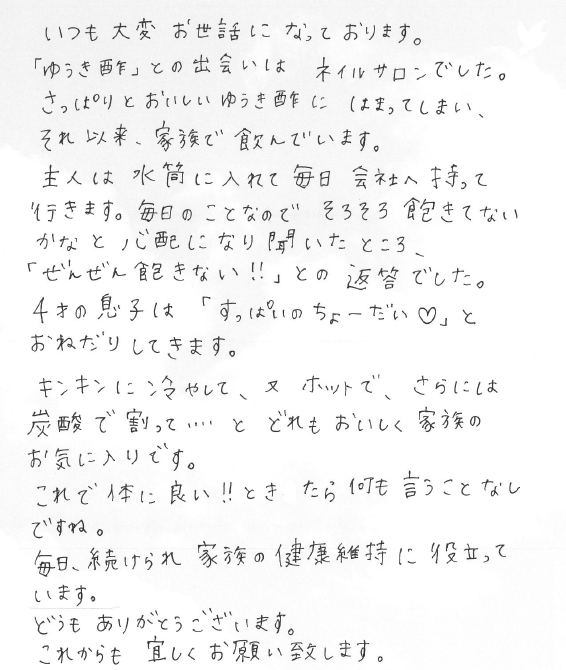 いつも大変 お世話に なっております。
「ゆうき酢」との出会いは ネイルサロンでした。
さっぱりとおいしいゆうき酢に はまってしまい、
それ以来、家族で 飲んでいます。
主人は 水筒に入れて毎日 会社へ持って
行きます。毎日のことなので そろそろ飽きてない
かなと 心配になり聞いたところ、
「ぜんぜん飽きない!!」との 返答でした。
4才の息子は「すっぱいのちょーだい♡」と
おねだりしてきます。
キンキンに冷やして、又 ホットで、さらには
炭酸で割って‥‥と どれもおいしく家族の
お気に入りです。
これで体に良い!!とき たら何も言うことなし
ですね。
毎日、続けられ 家族の健康維持に役立って
います。
どうも ありがとうございます。
これからも 宜しくお願い致します。